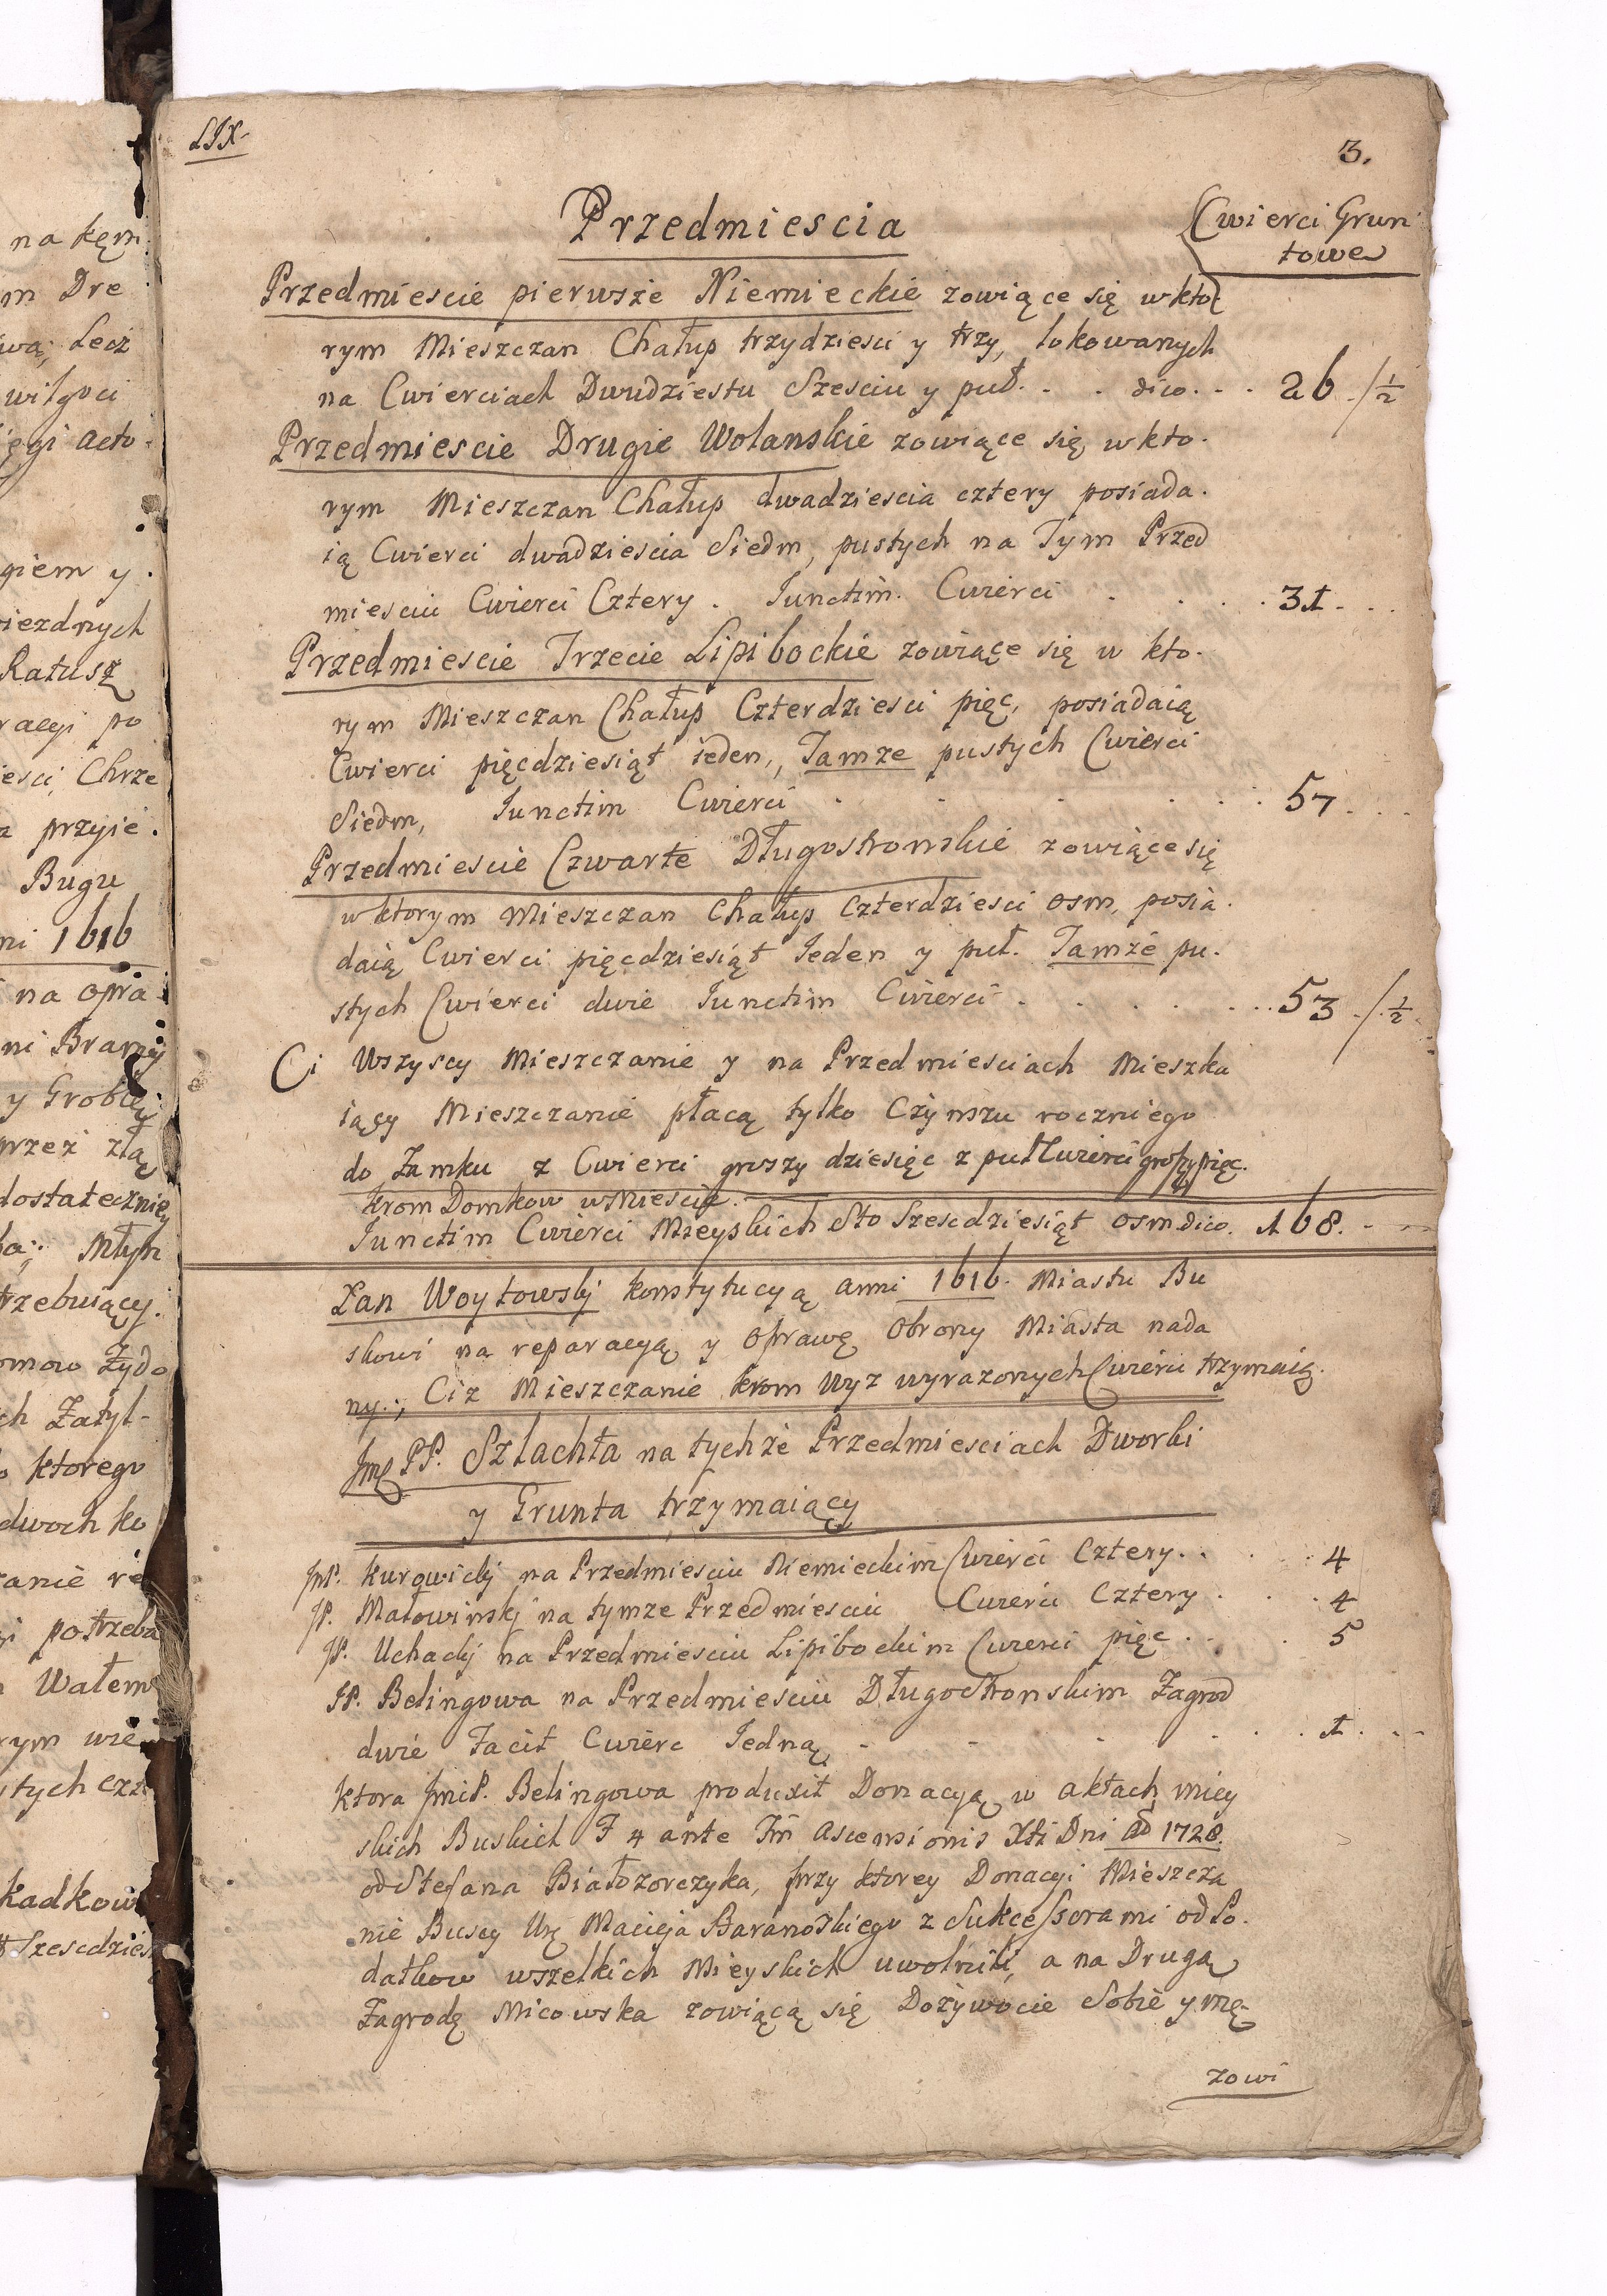 na kęm
m Dre
wą, Lecz
wilgoci
ęgi acto.
giem y.
iezdnych
Ratusz
racyi po
iesci, Chrze
z przyie.
Bugu
ni 1616
na opra
ni Bramy
y Groblę
przez złą
dostateczniey
ba; Młyn
trzebuiący.
omow Żydo
ch Zatył-
o ktorego
dwoch ko
anie re
i potrzeba
Wałem
rym wie
stych czt
kadkow
Szescdzies
LIX
3.
Przedmiescia
Cwierci Grun
towe
Przedmiescie pierwsze Niemieckie zowiące się w kto
rym Mieszczan Chałup trzydziesci y trzy, lokowanych
na Cwierciach Dwudziestu Szesciu y puł. . . dico. . . 26 /. 1/2
Przedmiescie Drugie Wolanskie zowiące się w kto.
rym Mieszczan Chałup dwadziescia cztery posiada.
ią Cwierci dwadziescia Siedm, pustych na Tym Przed
miesciu Cwierci Cztery. Iunctim. Cwierci . . . . 31. . .
Przedmiescie Trzecie Lipibockie zowiące się w kto.
rym Mieszczan Chałup Czterdziesci pięc, posiadaią
Cwierci pięcdziesiąt ieden,, Tamze pustych Cwierci
Siedm, Iunctim Cwierci . . . . . . 57. . .
Przedmiescie Czwarte Długostronskie zowiące się
w ktorym Mieszczan Chałup Czterdziesci osm, posia.
daią Cwierci pięcdziesiąt Ieden y puł. Tamże pu.
stych Cwierci dwie Iunctim Cwierci . . . . . . 53 ./. 1/2
Ci Wszyscy Mieszczanie y na Przedmiesciach Mieszka
iący Mieszczanie płacą tylko Czynszu roczniego
do Zamku z Cwierci groszy dziesięc z puł Cwierci groszy pięc.
krom Domkow w Miescie.
Iunctim Cwierci Mieyskich Sto Szescdziesiąt osm dico. 168. - -
Łan Woytowskj konstytucyą anni 1616. Miastu Bu
skowi na reparacyą y oprawę obrony Miasta nada
ny.; Ciz Mieszczanie krom wyz wyrazonych Cwierci trzymaią.
Jmć PP. Szlachta na tychże Przedmiesciach Dworki
y Grunta trzymaiący
JmP. Kurowickj na Przedmiesciu Niemieckim Cwierci Cztery. . . . 4
JP. Małowinskj na tymze Przedmiesciu Cwierci Cztery . . . 4
JP. Uchackj na Przedmiesciu Lipibockim Cwierci pięc . . . 5
JP. Belingowa na Przedmiesciu Długostronskim Zagrod
dwie Facit Cwierc Iedną . . . . . . 1. . .
ktora JmćP. Belingowa produxit Donacyą w aktach miey
skich Buskich F 4 ante Fm Ascensionis Xti Dni Ad 1728.
od Stefana Białozorczyka, przy ktorey Donacyi Mieszcza
nie Buscy Macieja Baranoskiego z Sukcessorami od Po.
datkow wszelkich Mieyskich uwolnili, a na Drugą
Zagrodę Micowska zowiącą się Dożywocie Sobie y mę-
zowi